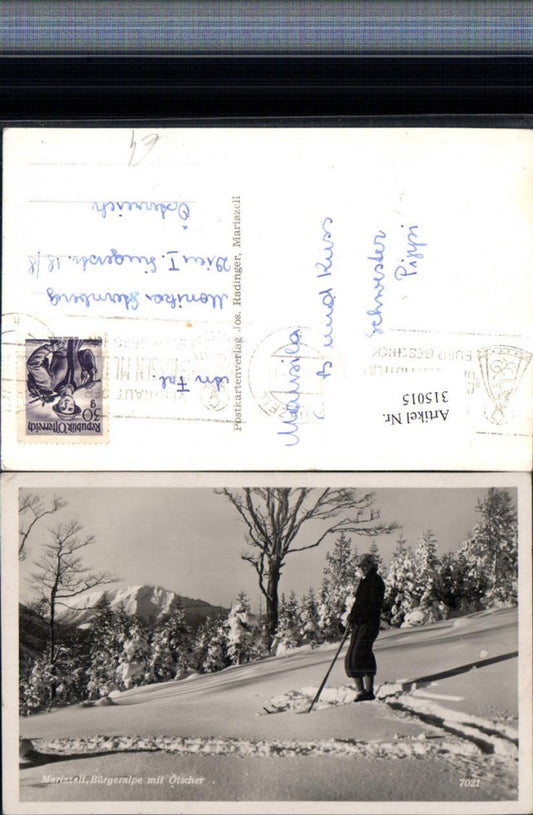 An Frl
Monika Sternberg
Wien I. Singerstr. 18/8
Österreich
Postkartenverlag Jos. Radinger, Mariazell
Mausila
B und Kuss
Schwester
Pippi
Artikel Nr.
315015
30 g
Republik Österreich
EUER GESCHICK
Mariazell, Bürgeralpe mit Ötscher
7021